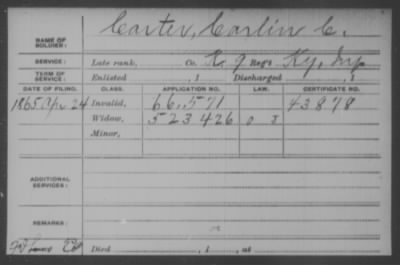 NAME OF SOLDIER: Carter, Carlin C.
SERVICE: Late rank, Co. K. 9 Reg't Ky. Inf
TERM OF SERVICE: Enlisted , 1 Discharged , 1
DATE OF FILING. CLASS. APPLICATION NO. LAW. CERTIFICATE NO.
1865 Apr 24 Invalid, 66,571 43878
Widow, 523426 0 J
Minor,
ADDITIONAL SERVICES:
REMARKS:
Died , 1 , at